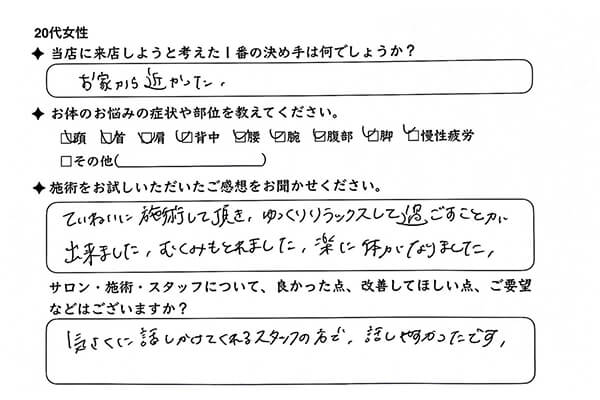 20代女性
✦ 当店に来店しようと考えた1番の決め手は何でしょうか?
お家から近かった。
✦ お体のお悩みの症状や部位を教えてください。
☑頭 ☑首 ☑肩 ☑背中 ☑腰 ☑腕 ☑腹部 ☑脚 ☑慢性疲労
□その他( )
✦ 施術をお試しいただいたご感想をお聞かせください。
ていねいに施術して頂き、ゆっくりリラックスして過ごすことが
出来ました。むくみもとれました。楽に体がなりました。
サロン・施術・スタッフについて、良かった点、改善してほしい点、ご要望
などはございますか?
気さくに話しかけてくれるスタッフの方で、話しやすかったです。